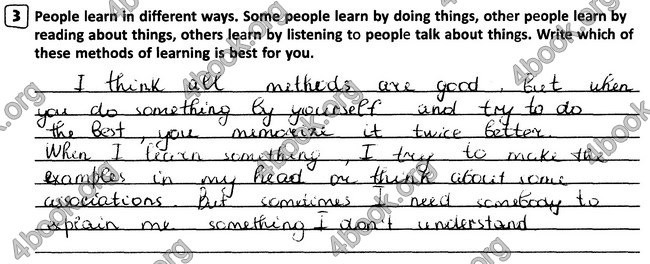 3 People learn in different ways. Some people learn by doing things, other people learn by
reading about things, others learn by listening to people talk about things. Write which of
these methods of learning is best for you.
I think all methods are good. But when
you do something by yourself and try to do
the best, you memorize it twice better.
When I learn something, I try to make the
examples in my head or think about some
associations. But sometimes I need somebody to
explain me something I don't understand
4book.org